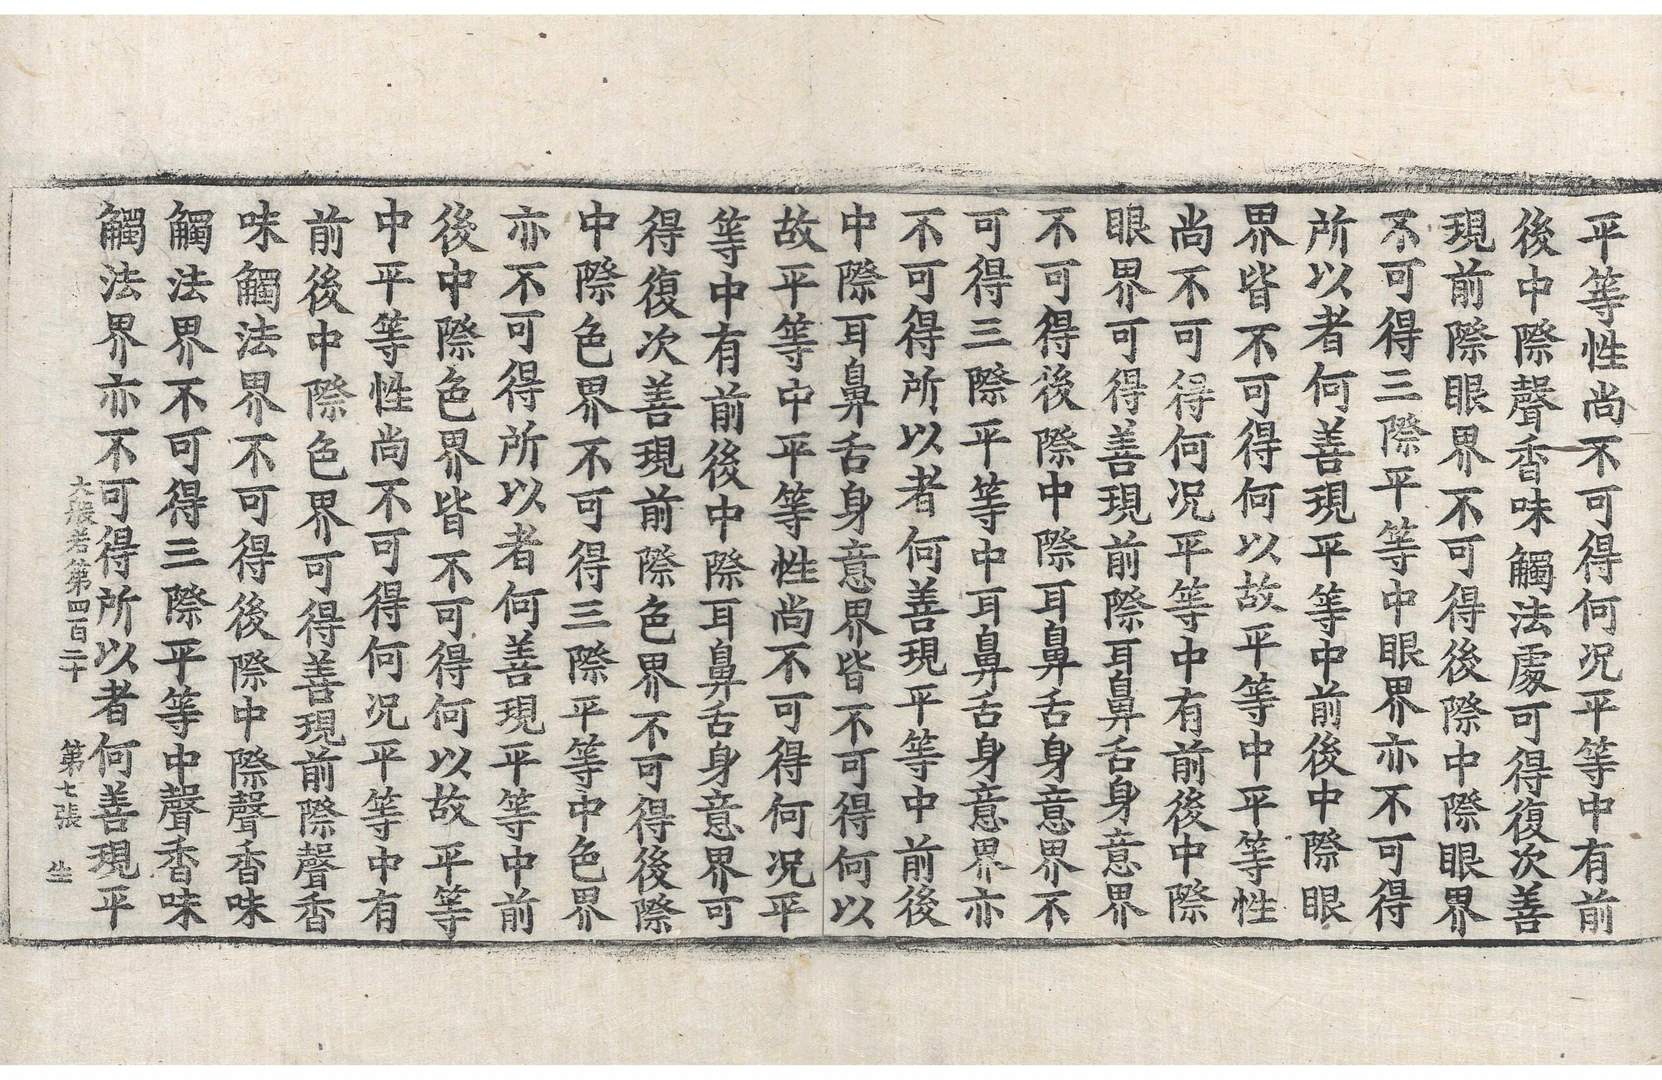 平等性尚不可得何況平等中有前
後中際聲香味觸法處可得復次善
現前際眼界不可得後際中際眼界
不可得三際平等中眼界亦不可得
所以者何善現平等中前後中際眼
界皆不可得何以故平等中平等性
尚不可得何況平等中有前後中際
眼界可得善現前際耳鼻舌身意界
不可得後際中際耳鼻舌身意界不
可得三際平等中耳鼻舌身意界亦
不可得所以者何善現平等中前後
中際耳鼻舌身意界皆不可得何以
故平等中平等性尚不可得何況平
等中有前後中際耳鼻舌身意界可
得復次善現前際色界不可得後際
中際色界不可得三際平等中色界
亦不可得所以者何善現平等中前
後中際色界皆不可得何以故平等
中平等性尚不可得何況平等中有
前後中際色界可得善現前際聲香
味觸法界不可得後際中際聲香味
觸法界不可得三際平等中聲香味
觸法界亦不可得所以者何善現平
大般若第四百二十 第七張 坐